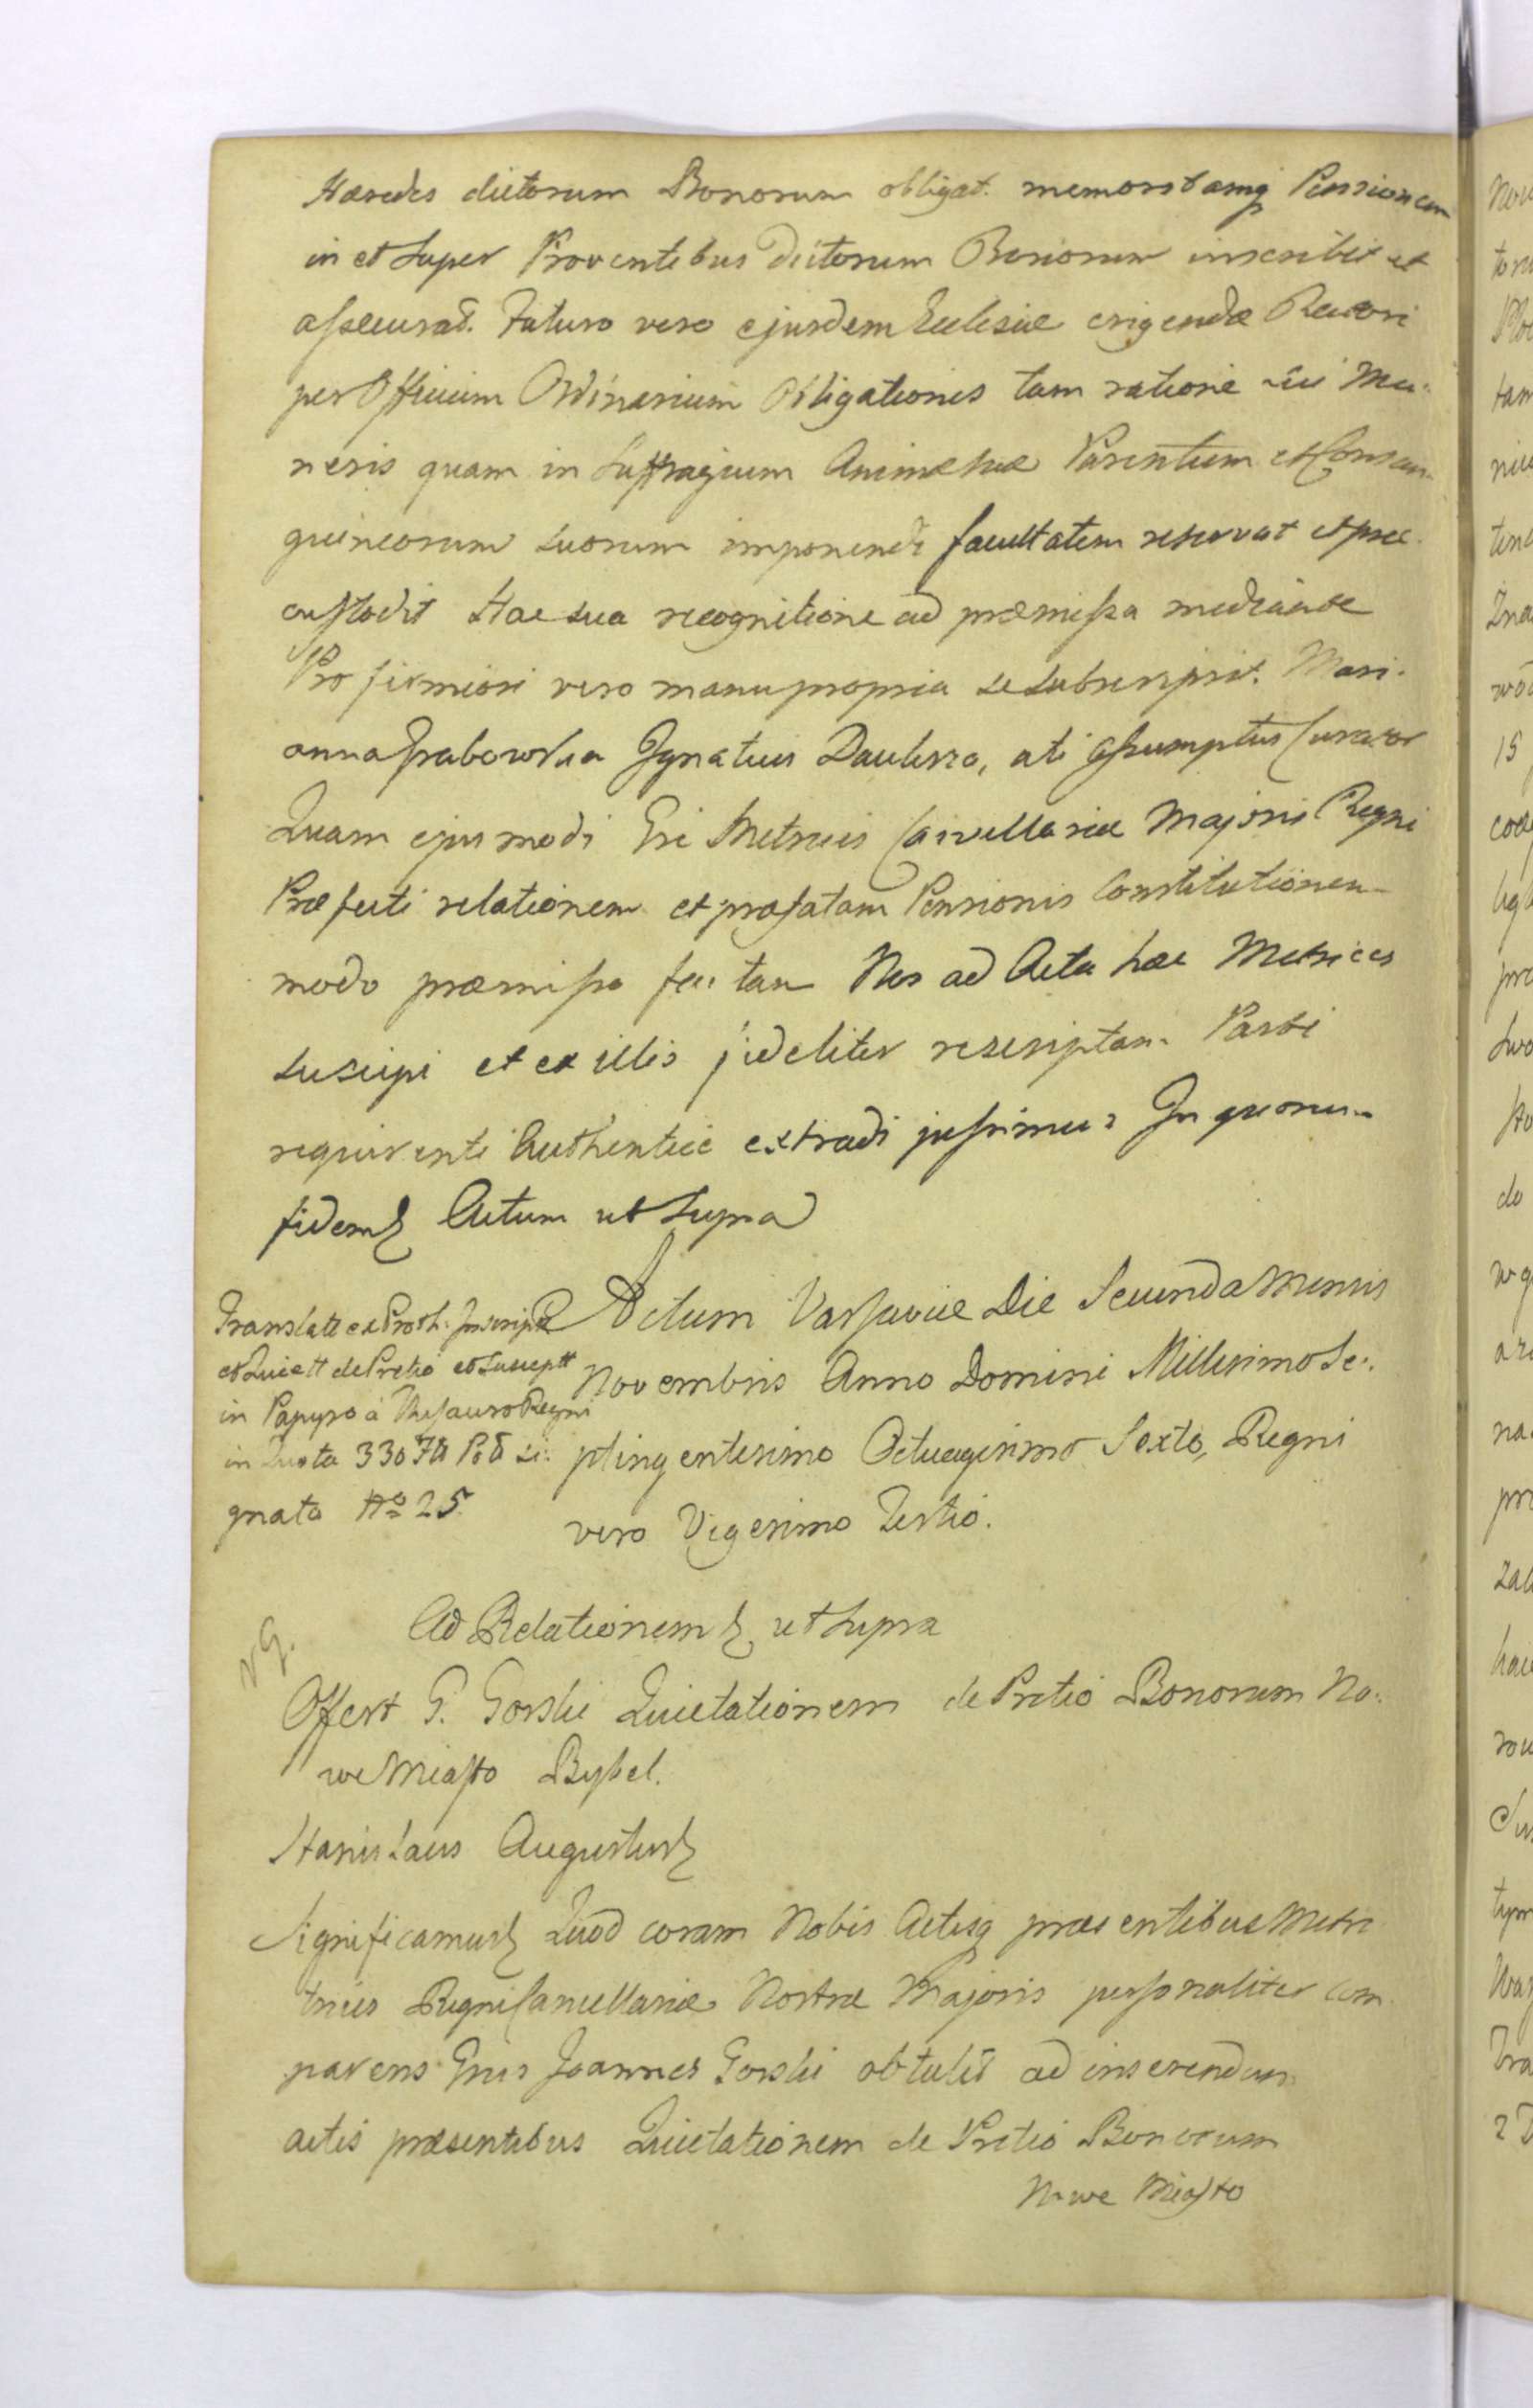 Hæredes dictorum Bonorum obligat. memoratamq Pensionem
in et super Proventibus dictorum Bonorum inscribit et
assecurat. Futuro vero ejusdem Ecclesiæ erigendæ Rectori
per Officium Ordinarium Obligationes tam ratione sui Mu-
neris quam in Suffragium Animæ suæ Parentum et Consan-
guineorum suorum imponendi facultatem reservat et præ-
custodit Hac sua recognitione ad præmissa mediante
Pro firmiori vero manu propria se subscripsit. Mari-
anna Grabowska Ignatius uti assumptus Curator
Quam ejusmodi Gsi Metrices Cancellariæ Majoris Regni
Præfecti relationem et præfatam Pensionis Constitutionem
modo præmisso factam Nos ad Acta hæc Metrices
suscipi et ex illis fideliter rescriptam Parti
requirenti Authentice extradi jussimus In quorum
fidem Actum ut supra
Translatt ex Proth: Inscript
et Quiett de Pretio et suscept
in Papyro à Thesauro Regni
in Quota 330 si:
gnato No 25.
Actum Varsaviæ Die Secunda Mensis
Novembris Anno Domini Millesimo Se:
ptingentesimo Octuagesimo Sexto, Regni
vero Vigesimo Tertio.
Ad Relationem ut supra
Offert G. Gorski Quietationem de Pretio Bonorum No:
we Miasto Bybel.
Stanislaus Augustus
Significamus Quod coram Nobis Actisq præsentibus Metri
trices Regni Cancellariæ Nostræ Majoris personaliter com
parens Gnus Joannes Gorski obtulit ad inserendum
actis præsentibus Quietationem de Pretio Bonorum
Nowe Miasto